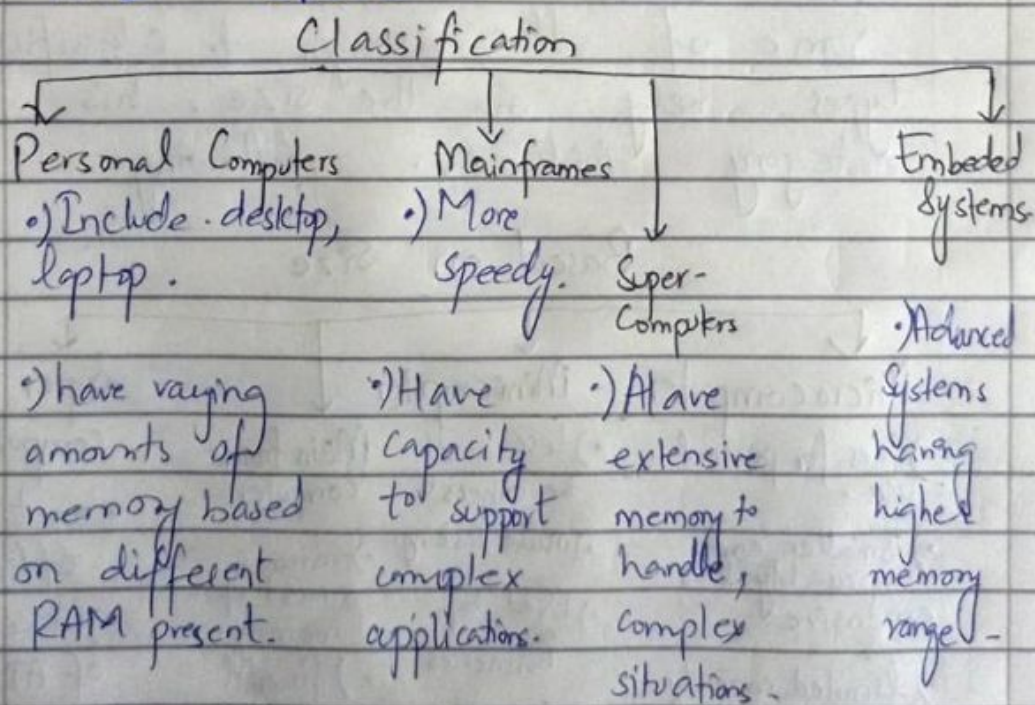 Classification
Personal Computers
•) Include desktop,
laptop.
•) have varying
amounts of
memory based
on different
RAM present.
Mainframes
•) More
speedy.
•) Have
capacity
to support
complex
applications.
Super-
Computers
•) Have
extensive
memory to
handle,
complex
situations.
Embeded
Systems
•) Advanced
Systems
having
higher
memory
range.